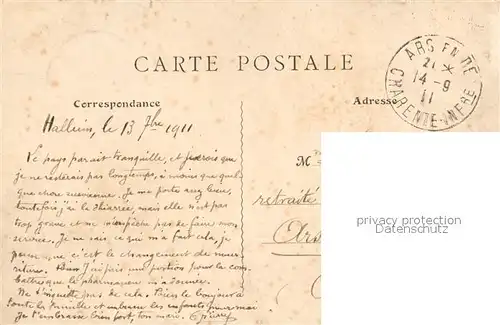 CARTE POSTALE
ARS EN RE
21 *
14 - 9
11
CHARENTE-INFRE
Correspondance
Adresse
Halluin, le 13 7bre 1911
Le pays parait tranquille, et je crois que
je ne resterais pas longtemps, à moins que quel-
que chose survienne. Je me porte assez bien,
toutefois j'ai la diarrée, mais elle n'est pas
trop grave et ne m'empêche pas de faire mon
service. Je ne sais ce qui m'a fait cela, je
pense que c'est le changement de nour-
riture.
pour la com-
battre que le pharmacien m'a donnée.
Ne t'inquiète pas de cela. Bien le bonjour à
toute la famille et embrasse les enfants pour moi
Je t'embrasse bien fort, ton mari.
M
retraité
Ars
privacy protection
watermark